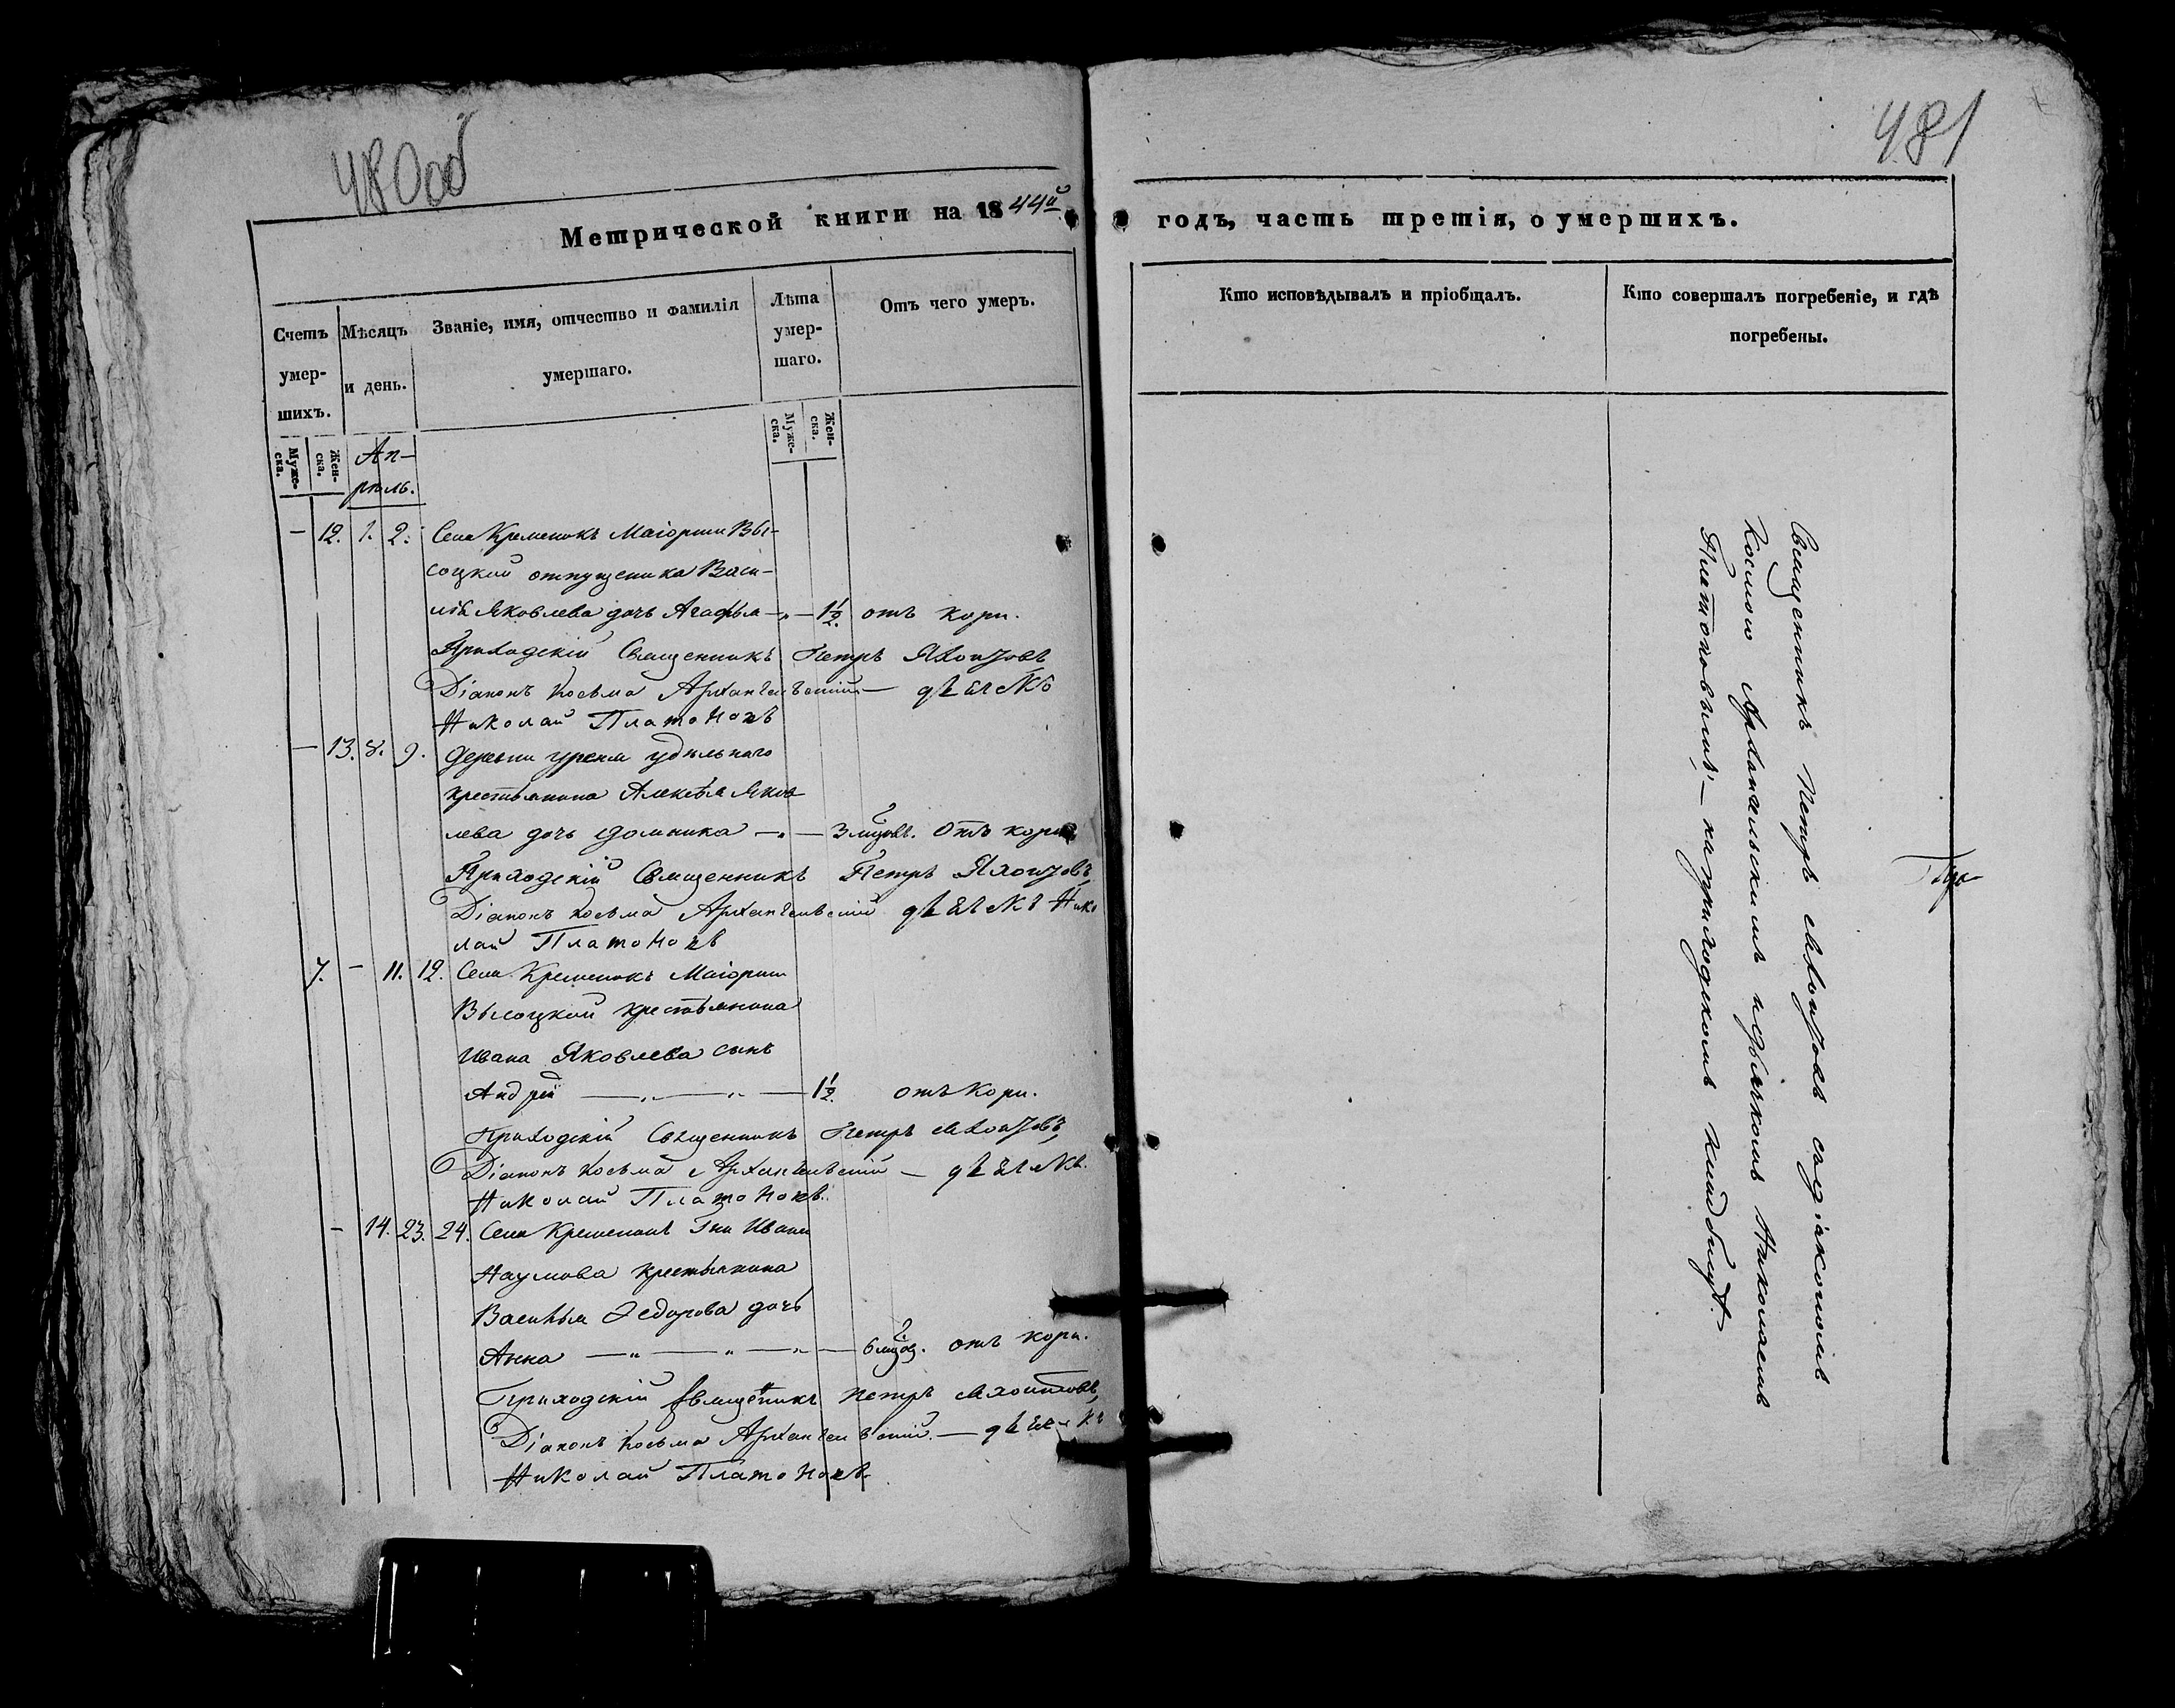 480об
Метрической книги на 1844й
Счетъ умершихъ.
Мѣсяцъ и день.
Званіе, имя, отчество и фамилія умершаго.
Лѣта умершаго.
Отъ чего умеръ.
Мужеска.
Женска.
Мужеска.
Женска.
Ап-
рѣль.
— 12. 1. 2. Села Кременокъ Маіорши Вы-
соцкой отпущеника Васи-
лья Яковлева дочь Агафья — „ — 1½. отъ кори.
Приходскій Священникъ Петръ
Діаконъ Косьма Архангельскій — дьячекъ
Николай Платоновъ
— 13. 8. 9. Деревни Урена удѣльнаго
крестьянина Алексѣя Яков
лева дочь Домника — „ — 3 мцовъ. Отъ кори
Приходскій Священникъ Петръ
Діаконъ Косьма Архангельскій дьячекъ Нико
лай Платоновъ
7. — 11. 12. Села Кременокъ Маіорши
Высоцкой крестьянина
Ивана Яковлева сынъ
Андрей — „ — „ — 1½. отъ Кори.
Приходскій Священникъ Петръ
Діаконъ Косьма Архангельскій — дьячекъ
Николай Платоновъ.
— 14. 23. 24. Села Кременокъ Гна Ивана
Наумова крестьянина
Василья Федорова дочь
Анна — „ — „ — „ — 6 мцов. отъ кори.
Приходскій Священникъ Петръ
Діаконъ Косьма Архангельскій. — дьячекъ
Николай Платоновъ
481
годъ, часть третія, о умершихъ.
Кто исповѣдывалъ и пріобщалъ.
Кто совершалъ погребеніе, и гдѣ погребены.
Священникъ Петръ съ діакономъ
Косьмою Архангельскимъ и дьячкомъ Николаемъ
Платоновымъ, — на приходскомъ кладбищѣ.